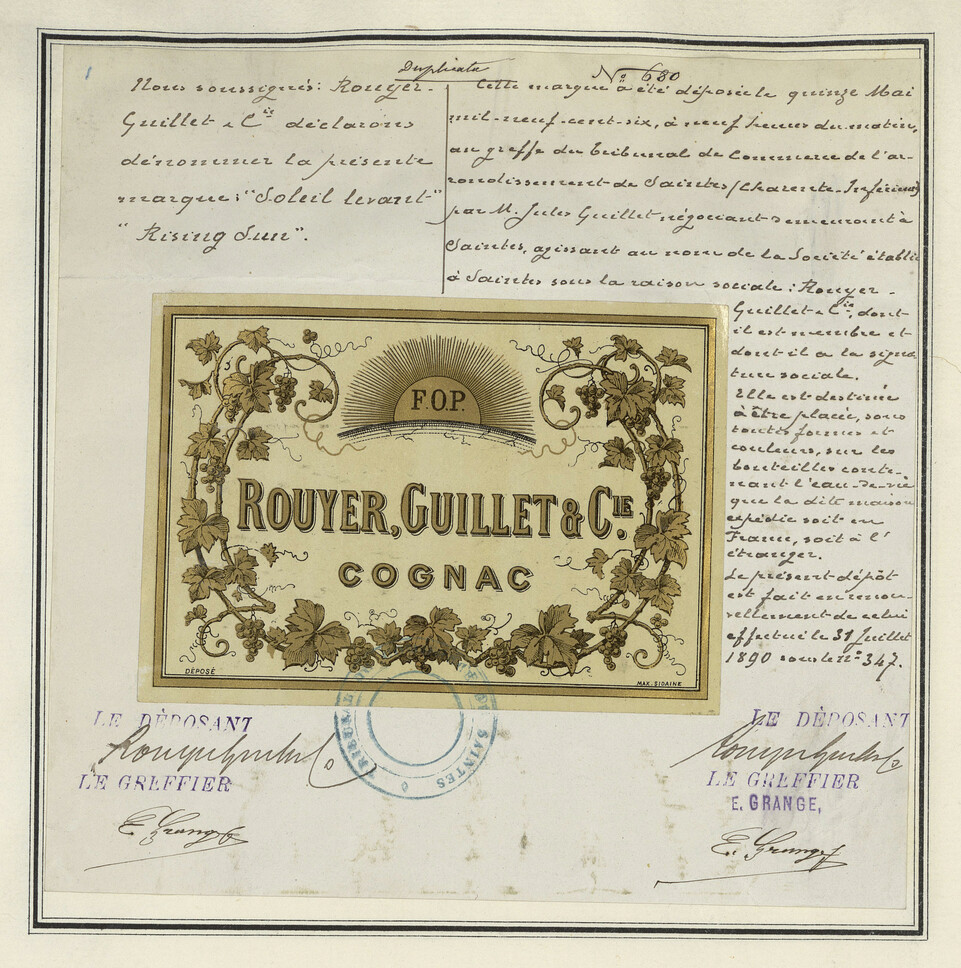 Duplicata
Nous soussignés: Rouyer-
Guillet & Cie déclarons
dénommer la présente
marque: "Soleil levant"
"Rising Sun".
No 680
Cette marque a été déposée le quinze Mai
mil-neuf-cent-six, à neuf heures du matin,
au greffe du Tribunal de Commerce de l'ar-
rondissement de Saintes (Charente-Inférieure)
par M. Jules Guillet négociant demeurant à
Saintes, agissant au nom de la Société établie
à Saintes sous la raison sociale: Rouyer-
Guillet & Cie, dont
il est membre et
dont il a la signa
ture sociale.
Elle est destinée
à être placée, sous
toutes formes et
couleurs, sur les
bouteilles conte-
nant l'eau-de-vie
que la dite maison
expédie soit en
France, soit à l'
étranger.
Le présent dépôt
est fait en renou-
vellement de celui
effectué le 31 Juillet
1890 sous le no 347.
F.O.P.
ROUYER, GUILLET & CIE.
COGNAC
DÉPOSÉ
MAX. SIDAINE
TRIBUNAL DE SAINTES
LE DÉPOSANT
Rouyer Guillet & Co
LE GREFFIER
E. Grange
LE DÉPOSANT
Rouyer Guillet & Co
LE GREFFIER
E. GRANGE,
E. Grange